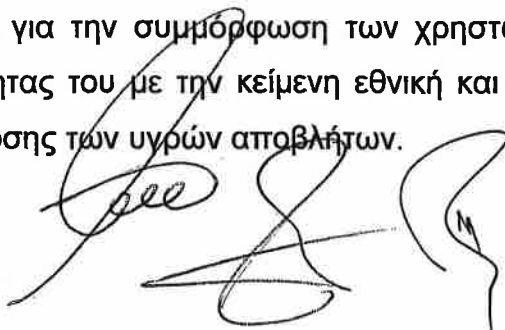 για την συμμόρφωση των χρηστ
ητας του με την κείμενη εθνική και
σης των υγρών αποβλήτων.